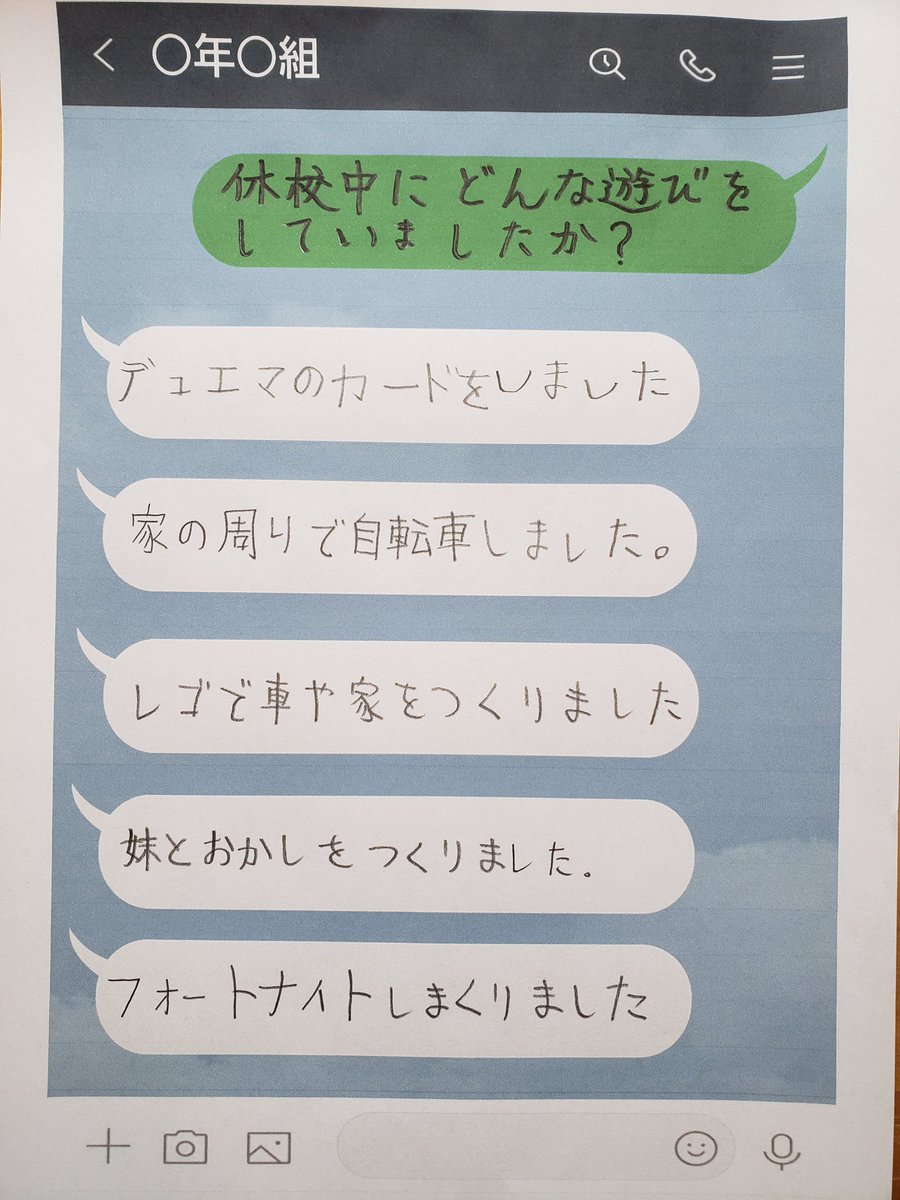 〇年〇組
休校中にどんな遊びを
していましたか?
デュエマのカードをしました
家の周りで自転車しました。
レゴで車や家をつくりました
妹とおかしをつくりました.
フォートナイトしまくりました